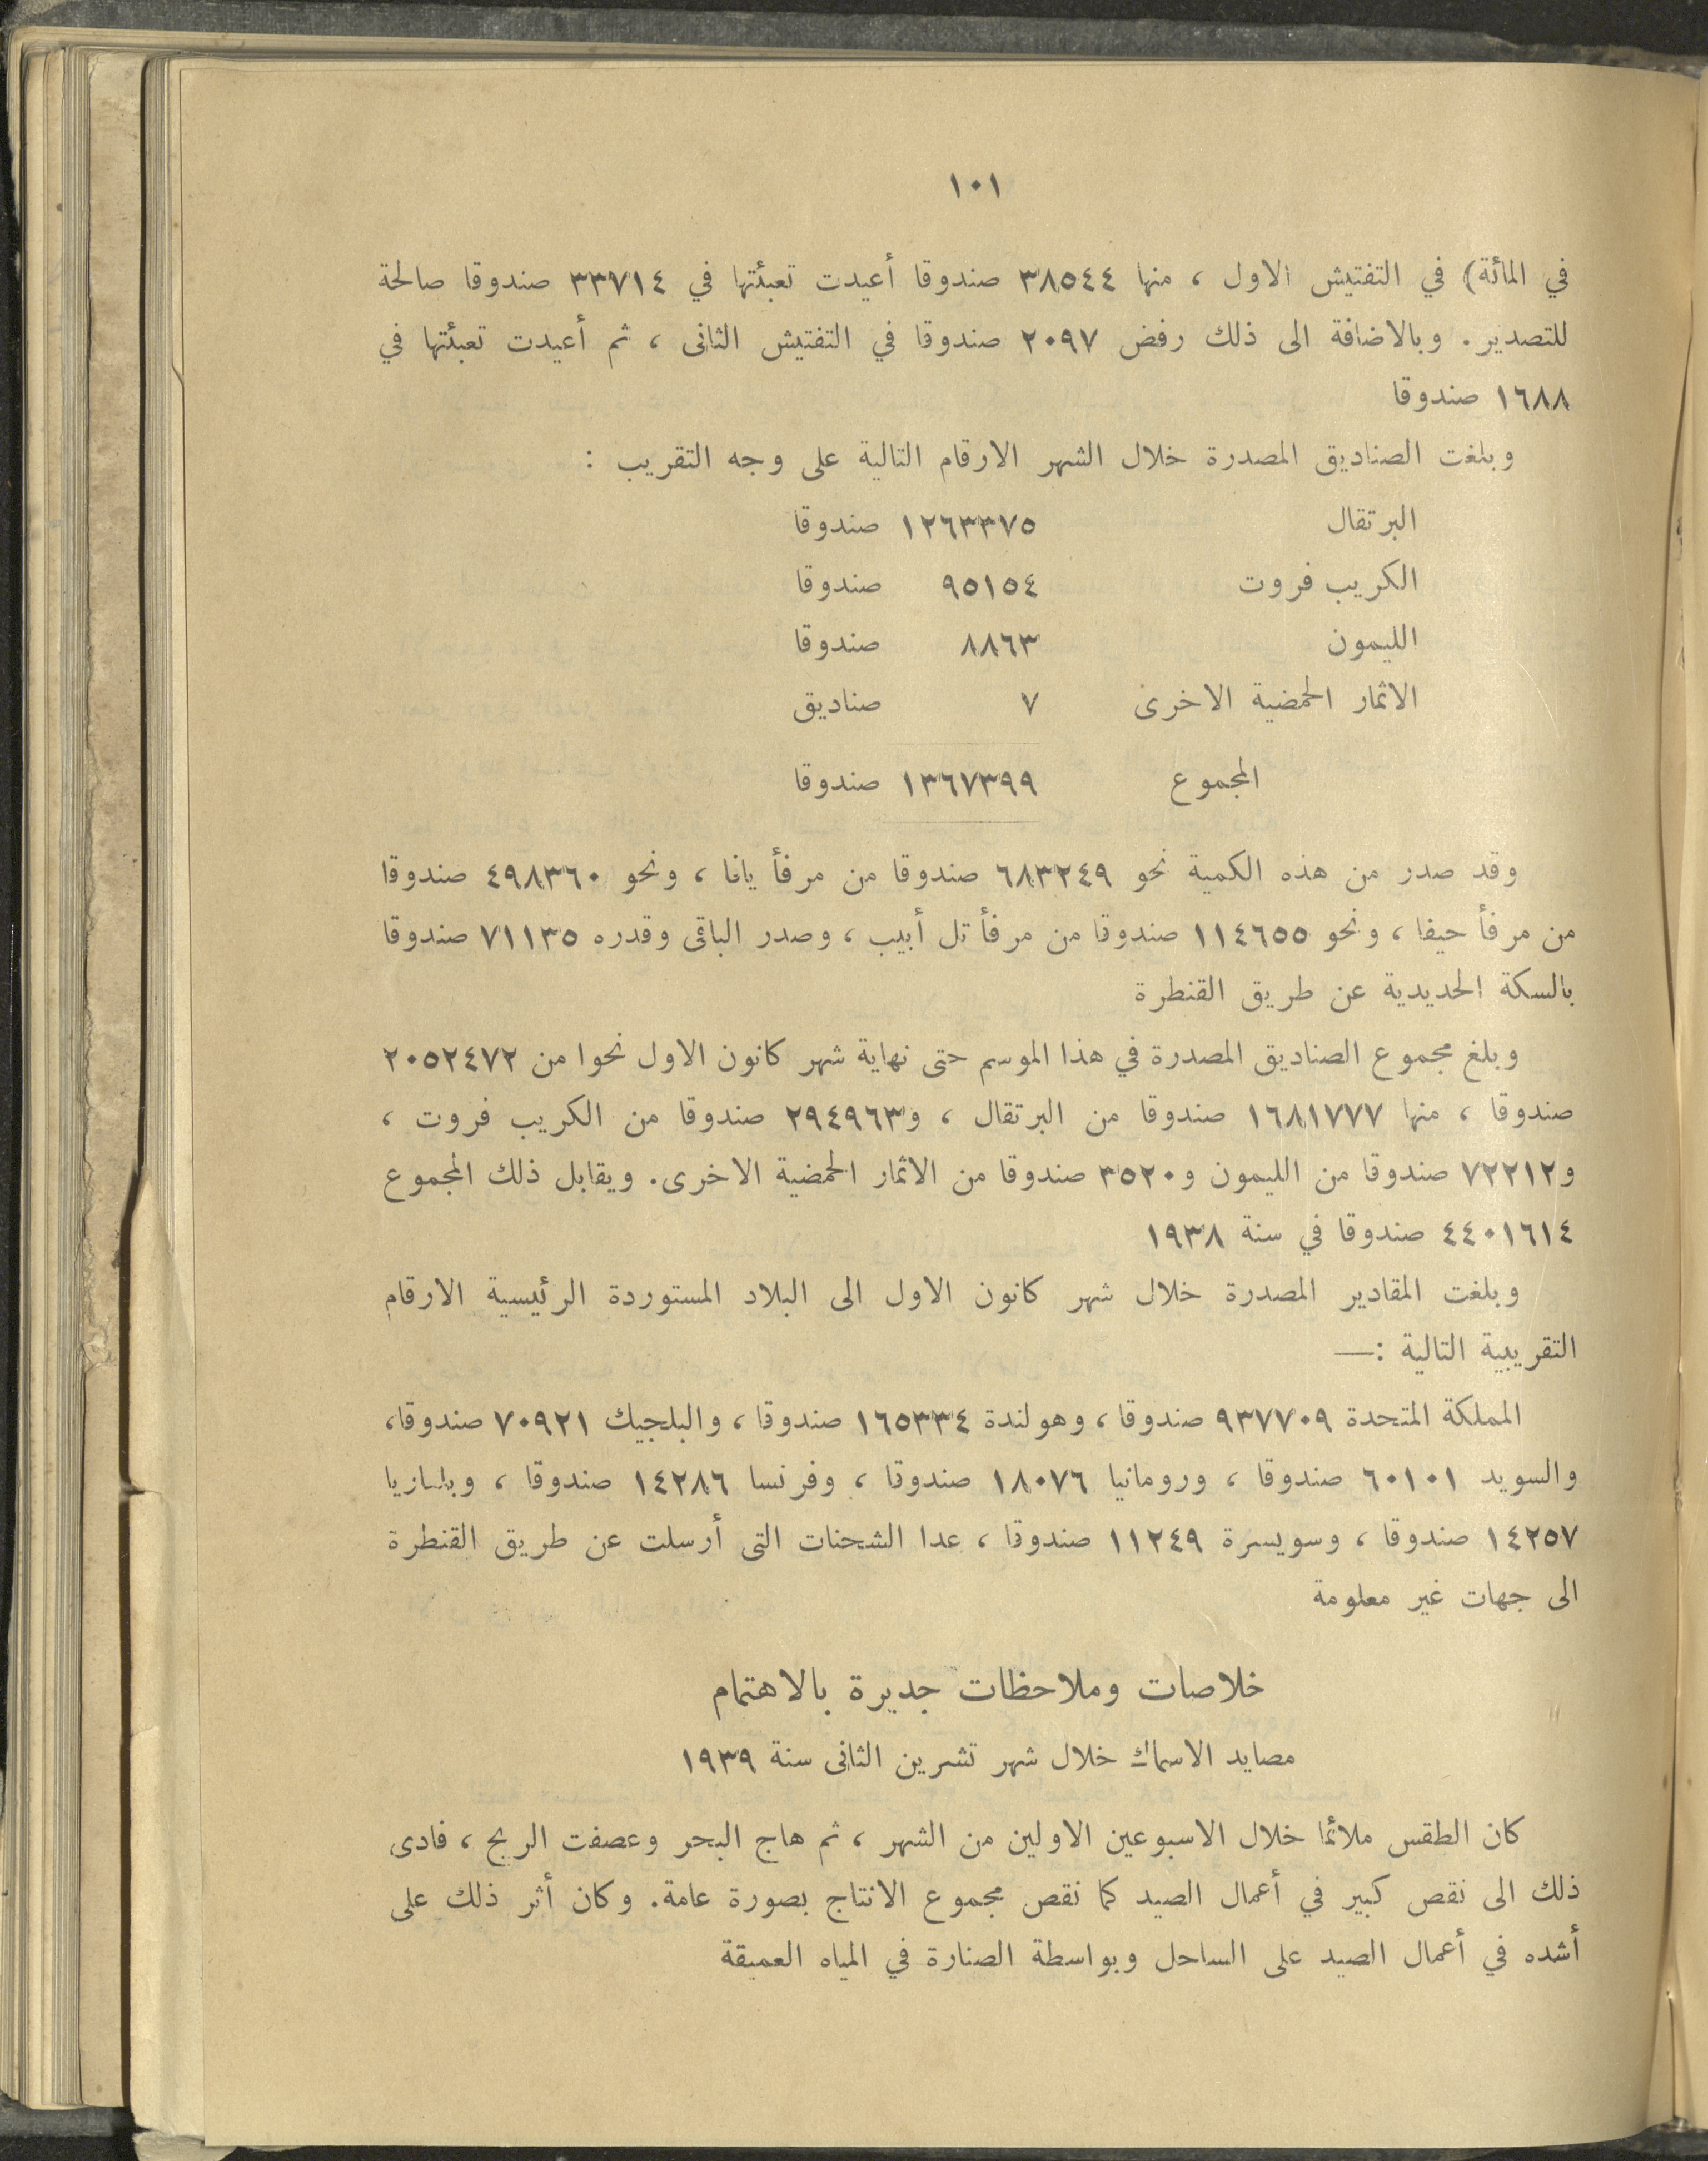 ١٠١
في المائة) في التفتيش الاول ، منها ٣٨٥٤٤ صندوقا أعيدت تعبئتها في ٣٣٧١٤ صندوقا صالحة
للتصدير . وبالاضافة الى ذلك رفض ٢٠٩٧ صندوقا في التفتيش الثانى ، ثم أعيدت تعبئتها في
١٦٨٨ صندوقا
وبلغت الصناديق المصدرة خلال الشهر الارقام التالية على وجه التقريب :
البرتقال ١٢٦٣٣٧٥ صندوقا
الكريب فروت ٩٥١٥٤ صندوقا
الليمون ٨٨٦٣ صندوقا
الاثمار الحمضية الاخرى ٧ صناديق
المجموع ١٣٦٧٣٩٩ صندوقا
وقد صدر من هذه الكمية نحو ٦٨٣٢٤٩ صندوقا من مرفأ يافا ، ونحو ٤٩٨٣٦٠ صندوقا
من مرفأ حيفا ، ونحو ١١٤٦٥٥ صندوقا من مرفأ تل أبيب ، وصدر الباقى وقدره ٧١١٣٥ صندوقا
بالسكة الحديدية عن طريق القنطرة
وبلغ مجموع الصناديق المصدرة في هذا الموسم حتى نهاية شهر كانون الاول نحوا من ٢٠٥٢٤٧٢
صندوقا ، منها ١٦٨١٧٧٧ صندوقا من البرتقال ، و٢٩٤٩٦٣ صندوقا من الكريب فروت ،
و٧٢٢١٢ صندوقا من الليمون و٣٥٢٠ صندوقا من الاثمار الحمضية الاخرى. ويقابل ذلك المجموع
٤٤٠١٦١٤ صندوقا في سنة ١٩٣٨
وبلغت المقادير المصدرة خلال شهر كانون الاول الى البلاد المستوردة الرئيسية الارقام
التقريبية التالية :—
المملكة المتحدة ٩٣٧٧٠٩ صندوقا ، وهولندة ١٦٥٣٣٤ صندوقا ، والبلجيك ٧٠٩٢١ صندوقا،
والسويد ٦٠١٠١ صندوقا ، ورومانيا ١٨٠٧٦ صندوقا ، وفرنسا ١٤٢٨٦ صندوقا ، وبلغاريا
١٤٢٥٧ صندوقا ، وسويسرة ١١٢٤٩ صندوقا ، عدا الشحنات التى أرسلت عن طريق القنطرة
الى جهات غير معلومة
خلاصات وملاحظات جديرة بالاهتمام
مصايد الاسماك خلال شهر تشرين الثانى سنة ١٩٣٩
كان الطقس ملائما خلال الاسبوعين الاولين من الشهر ، ثم هاج البحر وعصفت الريح ، فادى
ذلك الى نقص كبير في أعمال الصيد كما نقص مجموع الانتاج بصورة عامة. وكان أثر ذلك على
أشده في أعمال الصيد على الساحل وبواسطة الصنارة في المياه العميقة